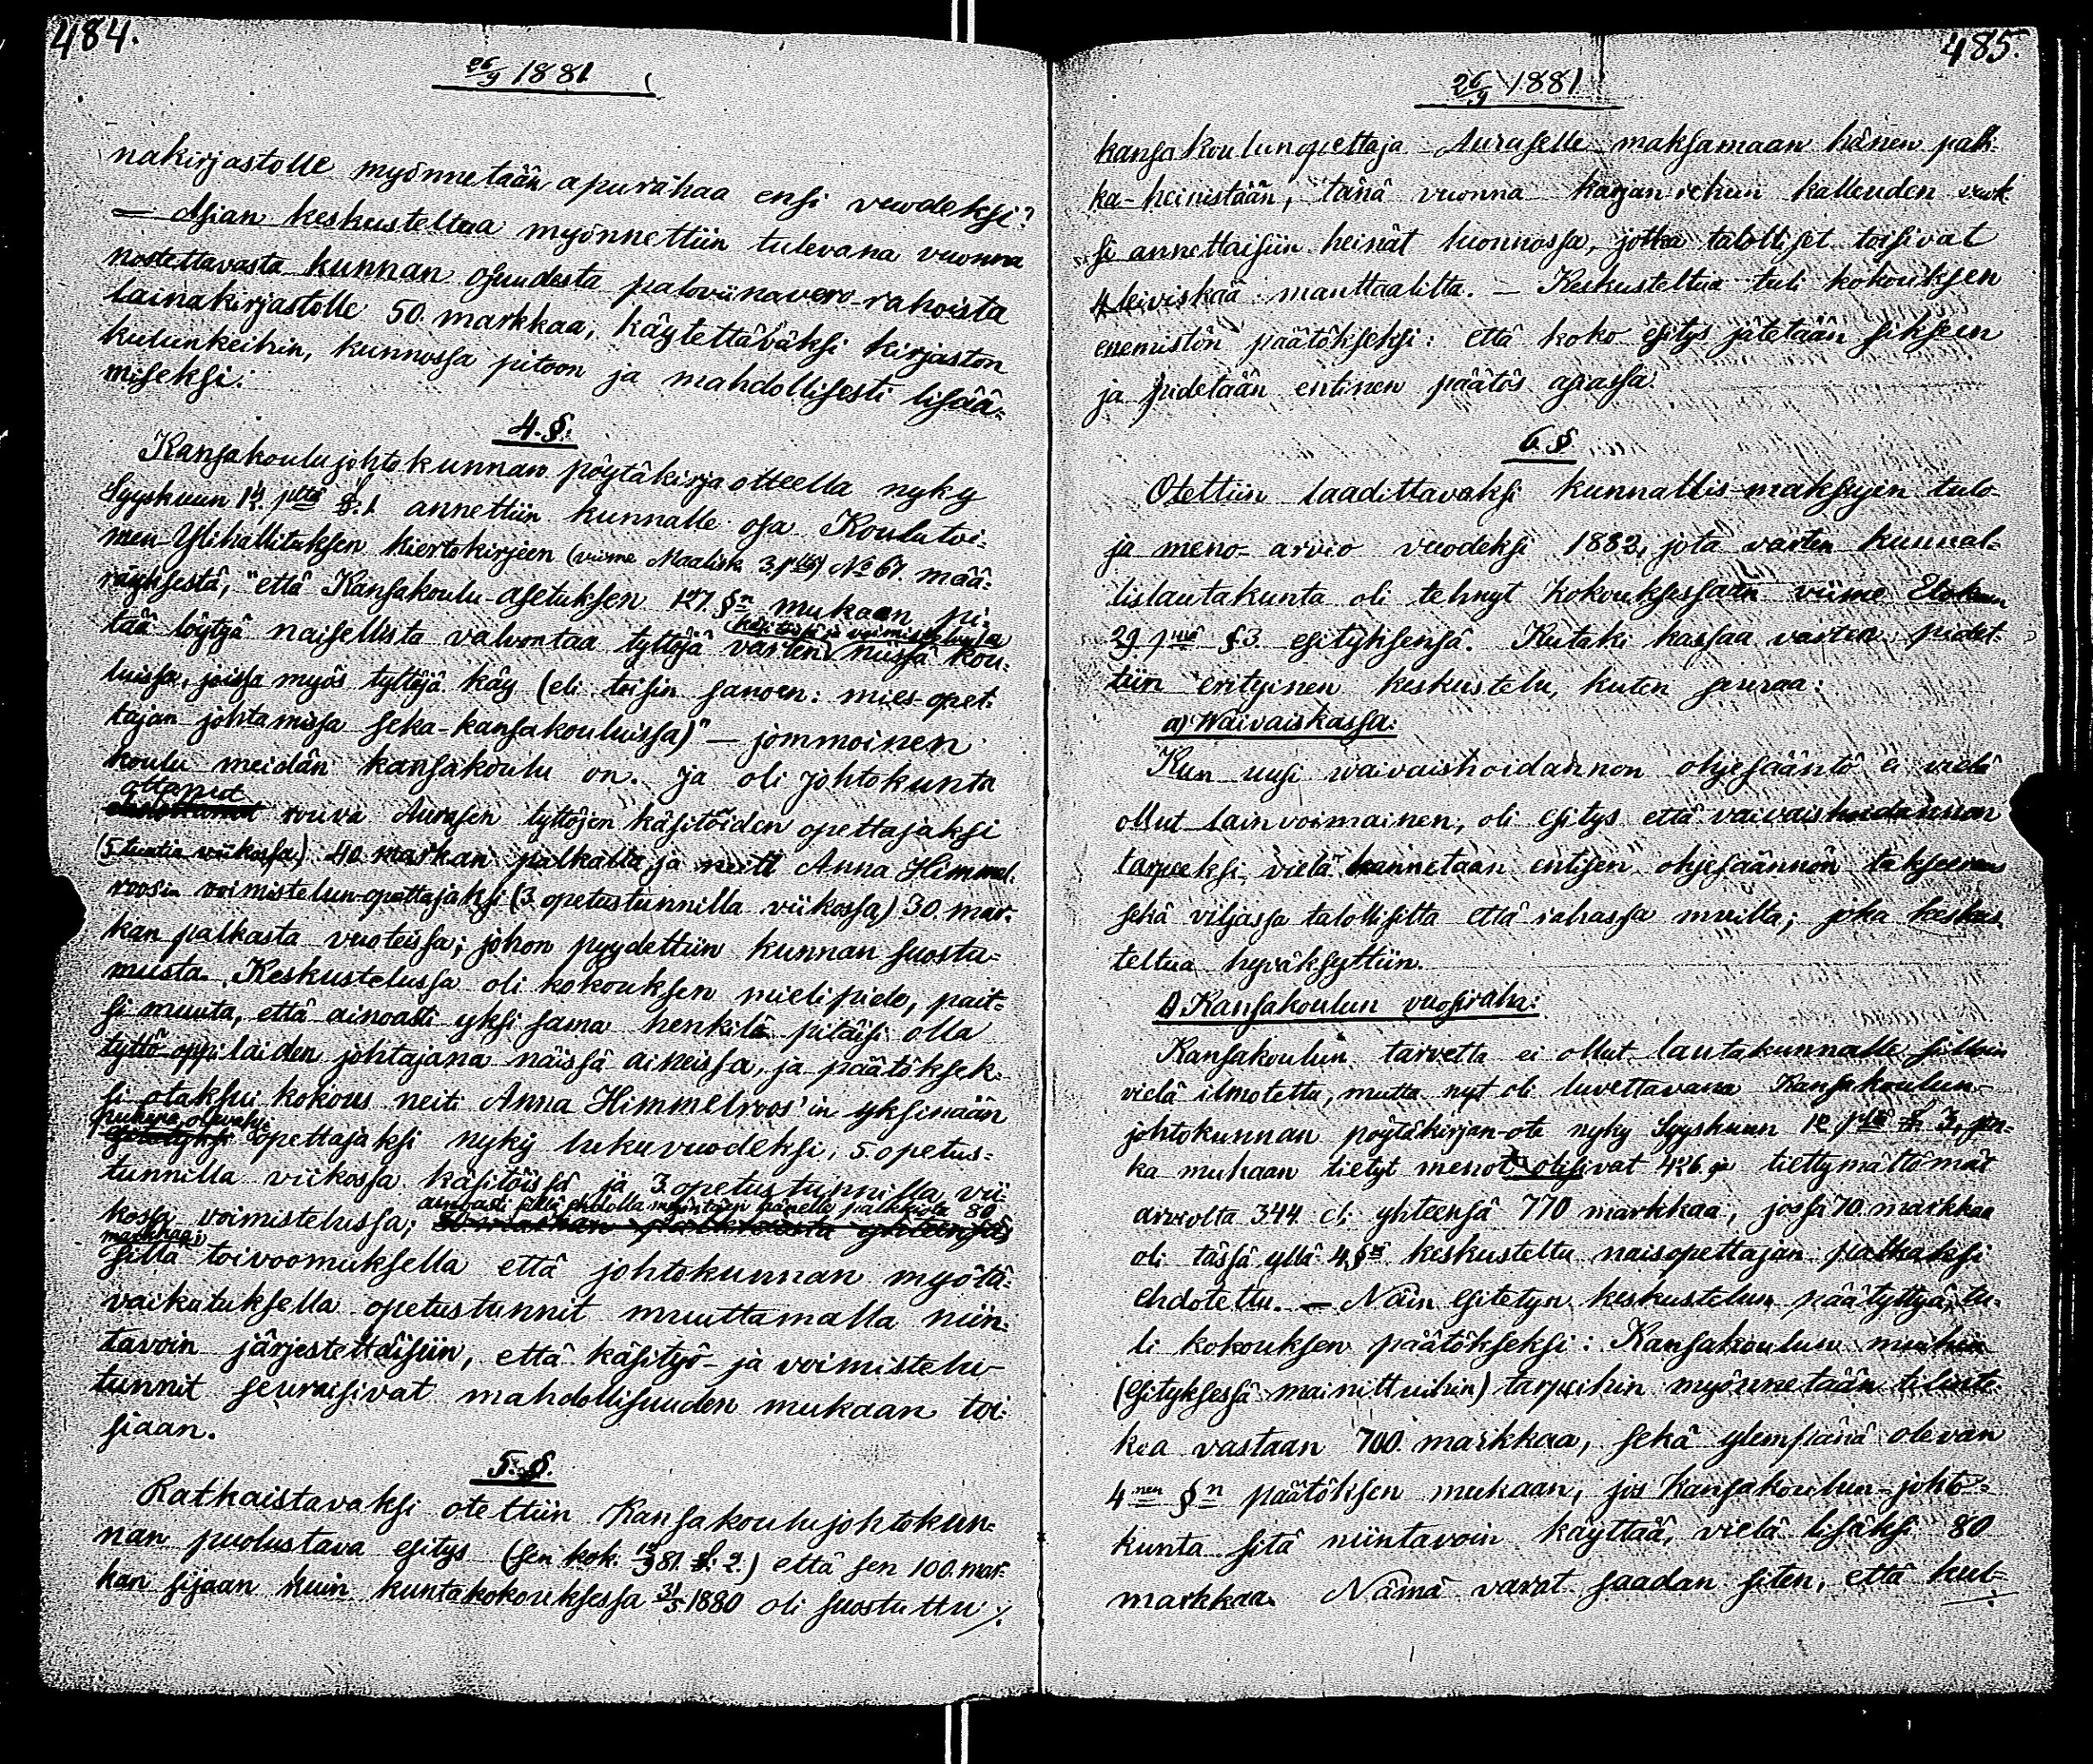 484.
26/9 1881
nakirjastolle myönnetään apurahaa ensi vuodeksi?
— Asian keskusteltua myönnettiin tulevana vuonna
nostettavasta kunnan osuudesta paloviinavero-rahoista
lainakirjastolle 50 markkaa, käytettäväksi kirjaston
kulunkeihin, kunnossa pitoon ja mahdollisesti lisää-
miseksi.
4. §.
Kansakoulujohtokunnan pöytäkirja otteella nyky
Syyskuun 12. pltä §. 1. annettiin kunnalle osa Koulutoi-
men Ylihallituksen kiertokirjeen (viime Maalisk. 3 pltä) No 67. mää-
räyksestä, "että Kansakoulu-asetuksen 127. §n mukaan pi-
käsitöissä ja voimistelussa
tää löytyä naisellista valvontaa tyttöjä varten niissä kou-
luissa, joissa myös tyttöjä käy (eli toisin sanoen: mies-opet-
tajan johtamissa seka-kansakouluissa)" — jommoinen
koulu meidän kansakoulu on. ja oli johtokunta
ottanut
rouva Aurasen tyttöjen käsitöiden opettajaksi
(5 tuntia viikossa) 40 markan palkalla, ja neiti Anna Himmel-
roosin voimistelun-opettajaksi (3 opetustunnilla viikossa) 30 mar-
kan palkasta vuoteissa; johon pyydettiin kunnan suostu-
musta. Keskustelussa oli kokouksen mielipide, pait-
si muuta, että ainoasti yksi sama henkilö pitäisi olla
tyttö-oppilaiden johtajana näissä aineissa, ja päätöksek-
si otaksui kokous neiti Anna Himmelroos'in yksinään
puheena olevaksi
opettajaksi nyky lukuvuodeksi, 5 opetus-
tunnilla viikossa käsitöissä ja 3 opetustunnilla vii-
ainoasti sillä ehdolla myöntäen hänelle palkkiota 80
kossa voimistelussa; 
markkaa,
sillä toivoomuksella että johtokunnan myötä-
vaikutuksella opetustunnit muuttamalla niin-
tavoin järjestettäisiin, että käsityö- ja voimistelu-
tunnit seuraisivat mahdollisuuden mukaan toi-
siaan.
5. §.
Ratkaistavaksi otettiin Kansakoulujohtokun-
nan puolustava esitys (sen kok. 12/9 81. §. 2.) että sen 100 mar-
kan sijaan kuin kuntakokouksessa 31/5 1880 oli suostuttu
485.
26/9 1881
kansakoulunopettaja Auraselle maksamaan hänen palk-
ka-heinistään, tänä vuonna karjan rehun kalleuden vuok-
si annettaisiin heinät luonnossa, jotka talolliset toisivat
4 leiviskää manttaalilta. — Keskusteltua tuli kokouksen
enemistön päätökseksi: että koko esitys jätetään siksein
ja pidetään entinen päätös ajassa.
6 §
Otettiin laadittavaksi kunnallis-maksujen tulo-
ja meno-arvio vuodeksi 1882, jota varten kunnal-
lislautakunta oli tehnyt kokouksessaan viime Elokuun
29 pnä §3. esityksensä. Kutaki kassaa varten pidet-
tiin erityinen keskustelu, kuten seuraa:
a) Waivaiskassa:
Kun uusi waivaishoidannon ohjesääntö ei vielä
ollut lainvoimainen, oli esitys että vaivaishoidannon
tarpeeksi vielä kannetaan entisen ohjesäännön takseeraus
sekä viljassa talollisilta että rahassa muilta; joka keskus-
teltua hyväksyttiin.
b) Kansakoulun vuosiraha:
Kansakoulun tarvetta ei ollut lautakunnalle silloin
vielä ilmotettu, mutta nyt oli luvettavana Kansakoulun-
johtokunnan pöytäkirjan-ote nyky Syyskuun 12 pltä §. 3, jon-
ka mukaan tietyt menot olisivat 426 ja tiettymättömät
arviolta 344 eli yhteensä 770 markkaa, jossa 70 markkaa
oli tässä yllä 4 §ssä keskusteltu naisopettajan palkaksi
ehdotettu. — Näin esitetyn keskustelun päätyttyä, tu-
li kokouksen päätökseksi: Kansakoulun muihin
(esityksessä mainittuihin) tarpeihin myönnetään tilinte-
koa vastaan 700 markkaa, sekä ylempänä olevan
4nen §n päätöksen mukaan, jos Kansakoulun-johto-
kunta sitä niintavoin käyttää, vielä lisäksi 80
markkaa. Nämä varat saadan siten, että kul-